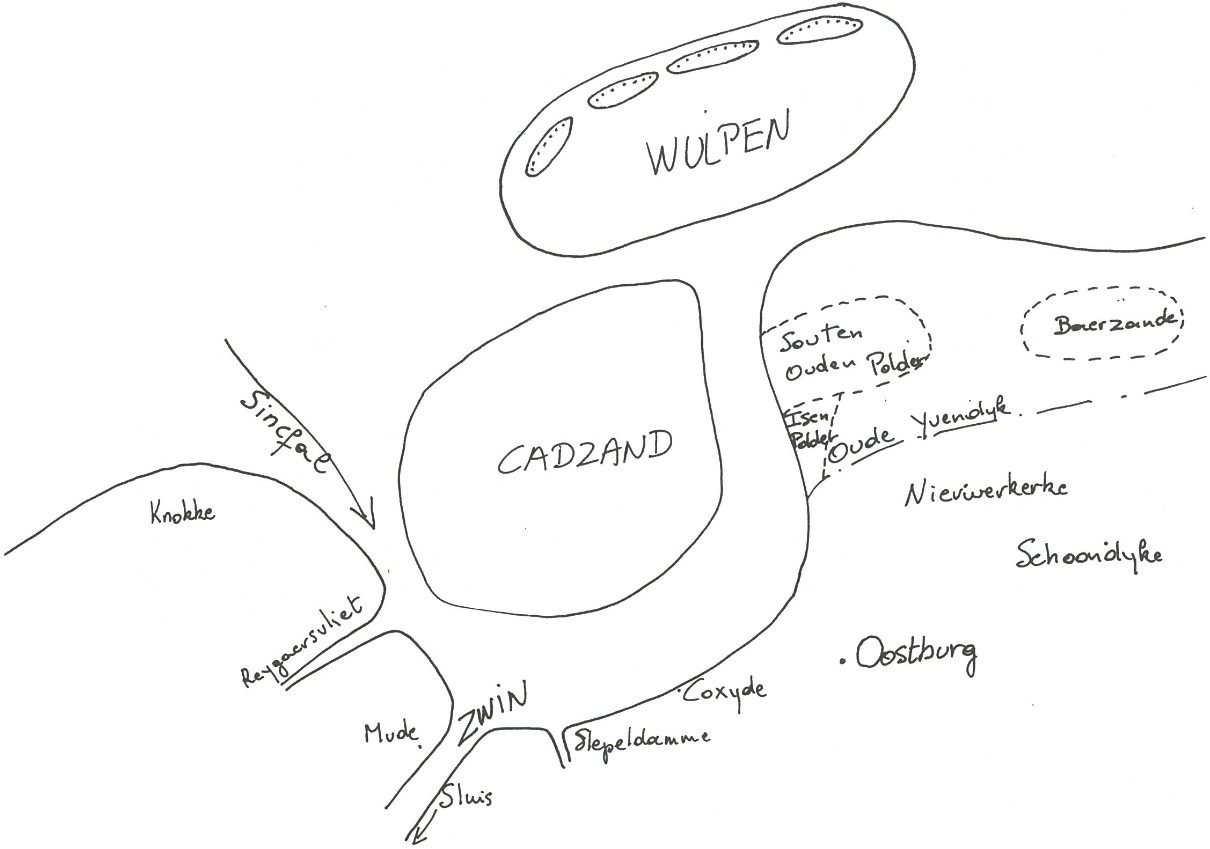 WULPEN
Souten
Ouden Polder
Baerzande
Sincfal
Isen
Polder
Oude Yvendyk
CADZAND
Knokke
Nieuwerkerke
Schoondyke
Reygaersvliet
Oostburg
ZWIN
Coxyde
Mude
Slepeldamme
Sluis